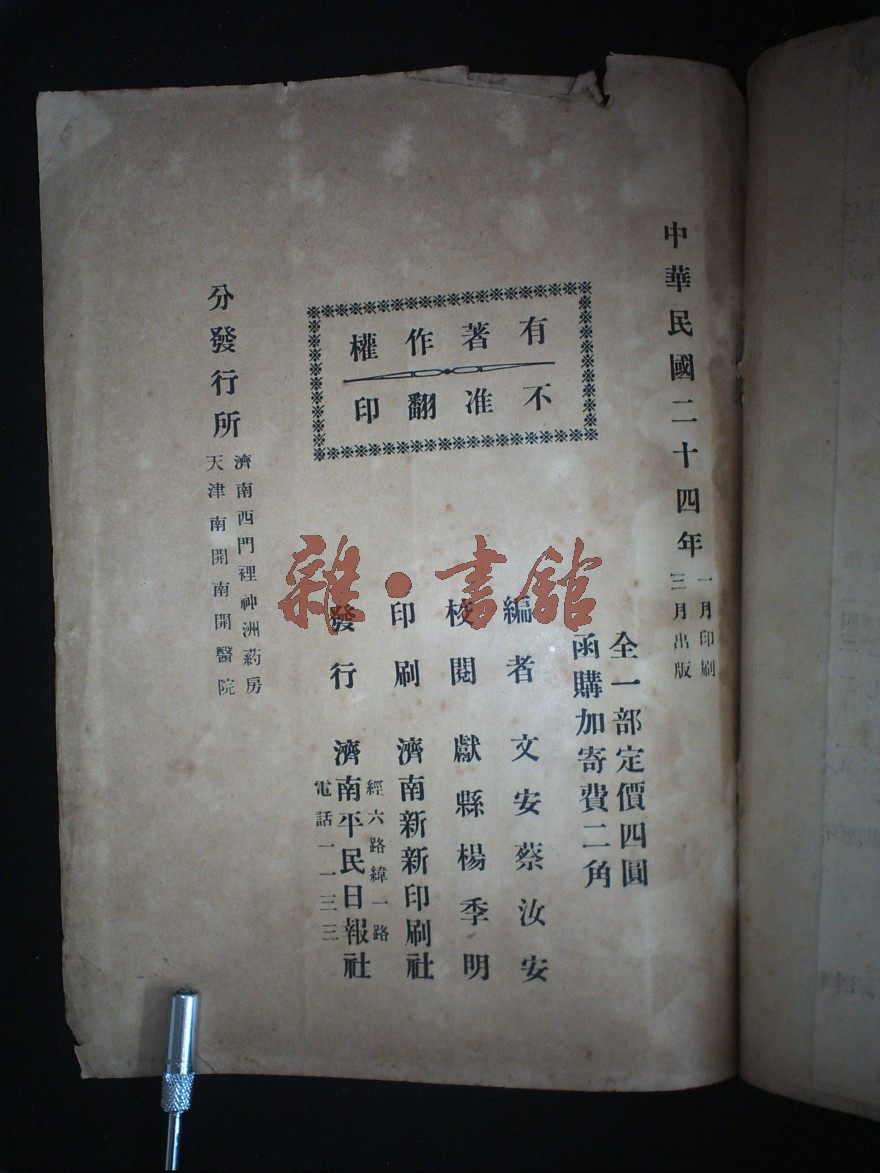 中華民國二十四年
一月印刷
三月出版
全一部定價四圓
函購加寄費二角
有著作權
不准翻印
編者 文安蔡汝安
校閱 獻縣楊季明
印刷 濟南新新印刷社
經六路緯一路
發行 濟南平民日報社
電話一一三三
分發行所
濟南西門裡神洲葯房
天津南開南開醫院
雜·書館